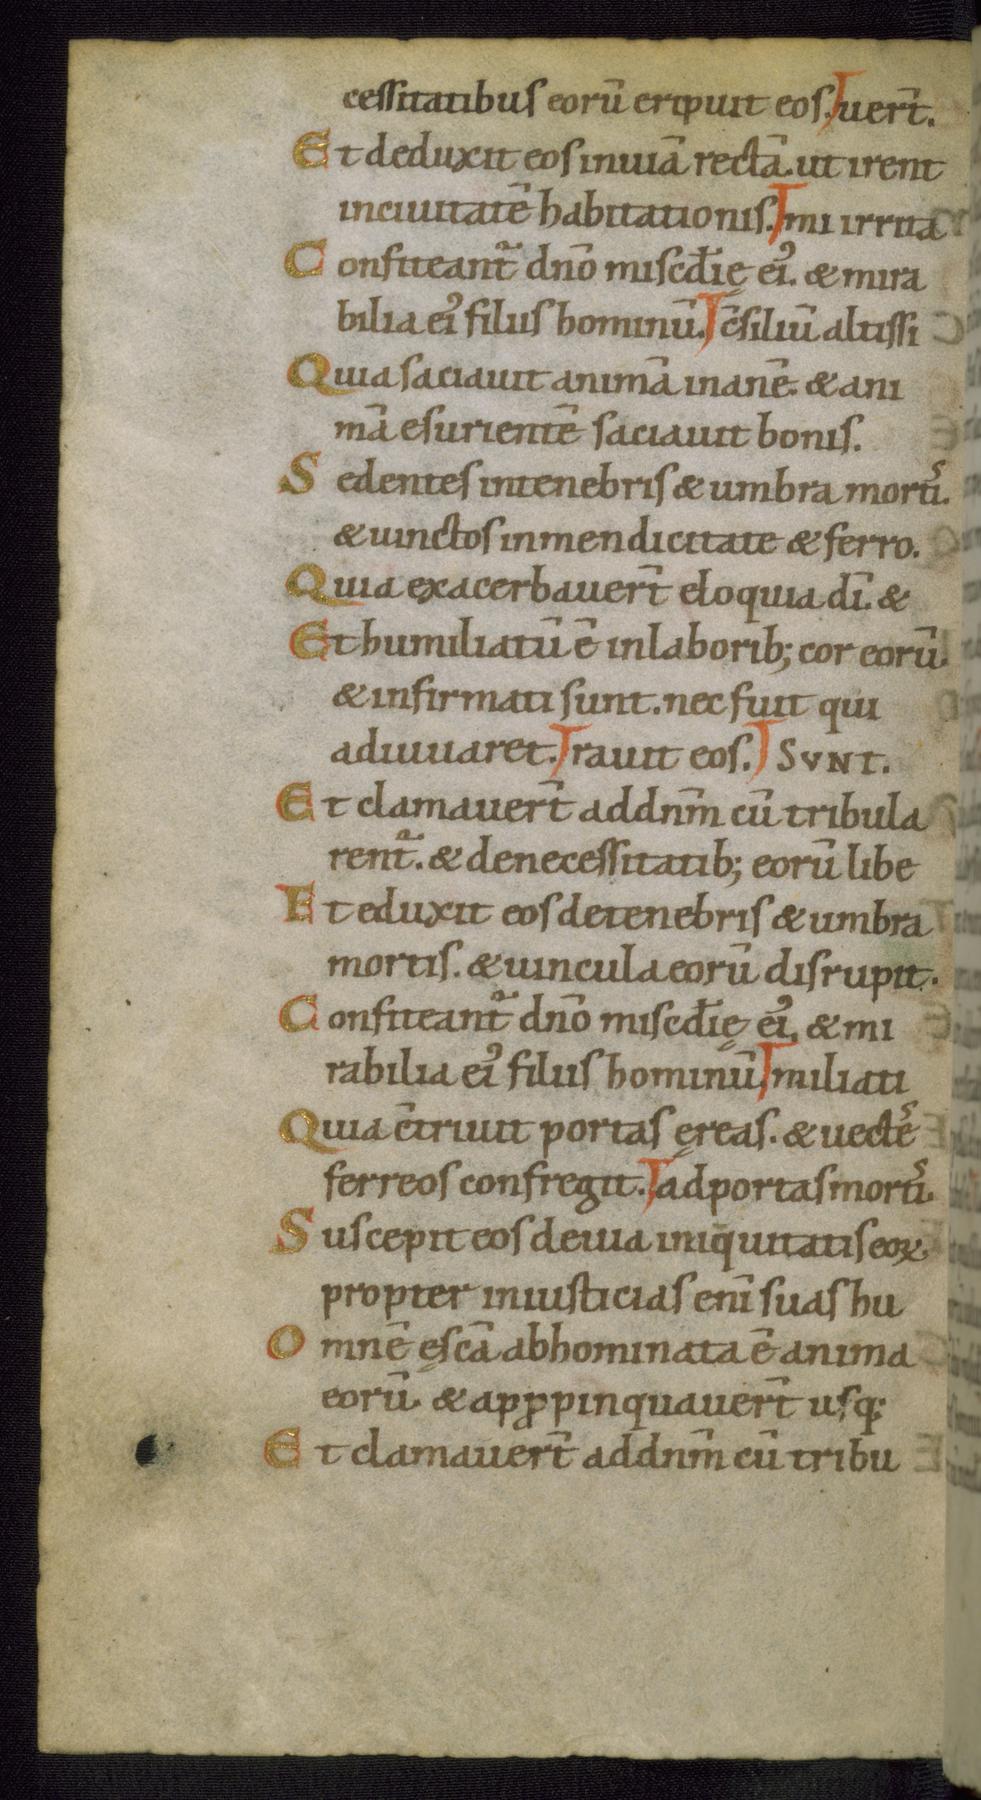 cessitatibus eorū eripuit eos. uer̄t.
Et deduxit eos inuiā rectā. ut irent
inciuitatē habitationis. mi irrita
Confiteant᷑ dn̄o misc̄dię ei᷒. & mira
bilia ei᷒ filiis hominū. c̄siliū altissi
Quia saciauit animā inanē. & ani
mā esurientē saciauit bonis.
Sedentes intenebris & umbra mortiᷤ.
& uinctos inmendicitate & ferro.
Quia exacerbauer̄t eloquia dī. &
Et humiliatū ē inlaborib; cor eorū.
& infirmati sunt. nec fuit qui
adiuuaret. rauit eos. SVNT.
Et clamauer̄t addn̄m cū tribula
rent᷑. & denecessitatib; eorū libe
Et eduxit eos detenebris & umbra
mortis. & uincula eorū disrupit.
Confiteant᷑ dn̄o misc̄dię ei᷒. & mi
rabilia ei᷒ filiis hominū. miliati
Quia c̄triuit portas ęreas. & uecteᷤ
ferreos confregit. ad portas mortiᷤ.
Suscepit eos deuia iniquitatis eoꝝ.
propter iniusticias enī suas hu
Omnē ęscā abhominata ē anima
eorū. & apꝓpinquauer̄t usq;
Et clamauer̄t addn̄m cū tribu